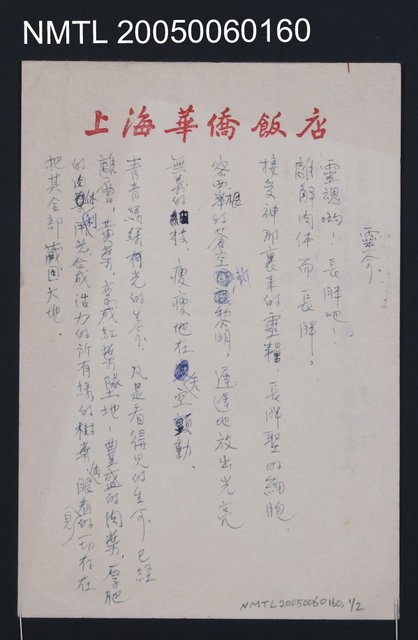 NMTL 20050060160
上海華僑飯店
靈命
靈魂喲!長胖吧!
離解肉体而長胖。
接受神那裏來的靈糧 長胖聖的細胞
密西根的蒼空 黎明,遙遙地放出光亮
無葉的細枝 瘦瘦地在天空顫動
青青綠綠有光的生命、凡是看得見的生命 已經
離當,黃葉,変成紅葉墜地、豐盛的肉葉,厚肥
的肉体 利用光合成活力的所有綠的樹葉 眼看的一切存在
把其全部藏回大地.
NMTL20050060160, 1/2